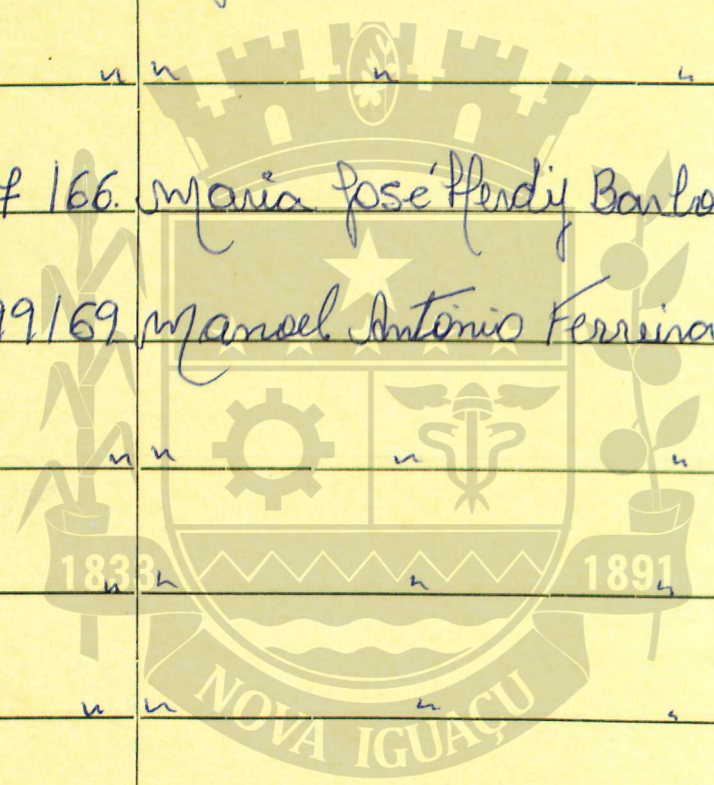 " " " "
166. Maria José Herdy
99/69 Manoel Antônio Ferreira
" " " "
1833 1891
" " " "
" " " "
NOVA IGUAÇU